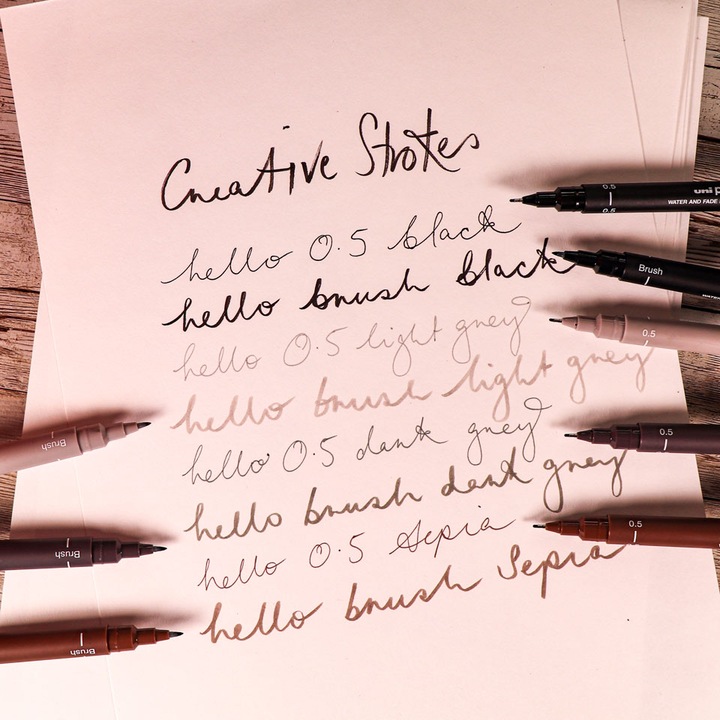 Creative Strokes
hello 0.5 black
hello brush black
hello 0.5 light grey
hello brush light grey
hello 0.5 dark grey
hello brush dark grey
hello 0.5 Sepia
hello brush Sepia
0.5
0.5
uni
WATER AND FADE
Brush
0.5
0.5
0.5
Brush
Brush
Brush